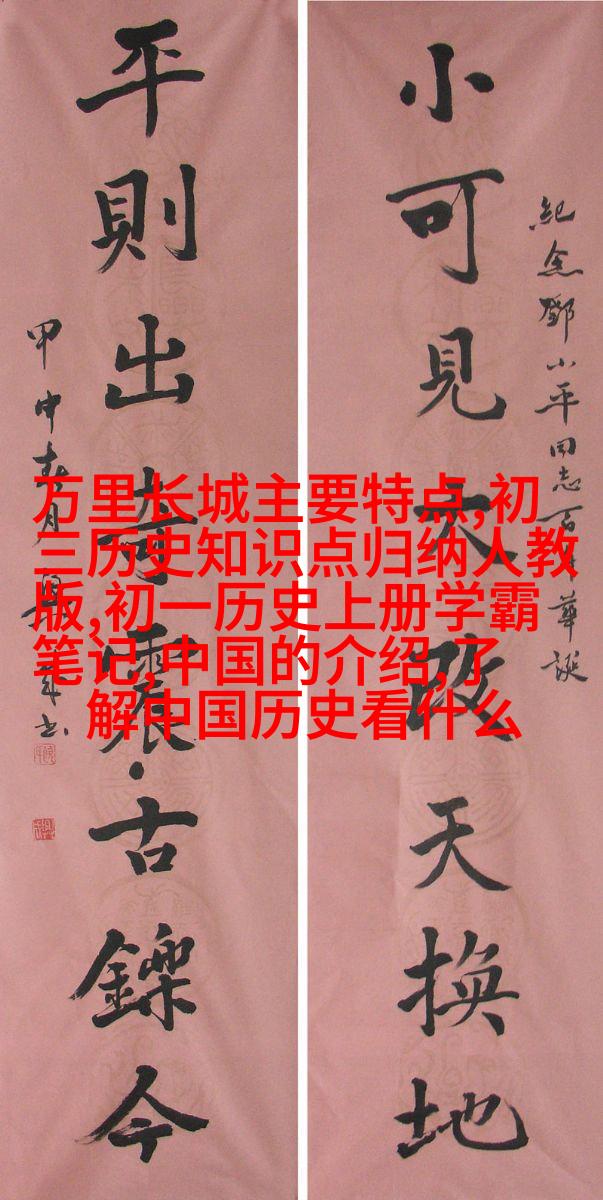 紀念鄧小平同志百年華誕
小可見大改天換地
平則出奇震古鑠今
甲申春月
万里长城主要特点,初
三历史知识点归纳人教
版,初一历史上册学霸
笔记,中国的介绍,了
解中国历史看什么